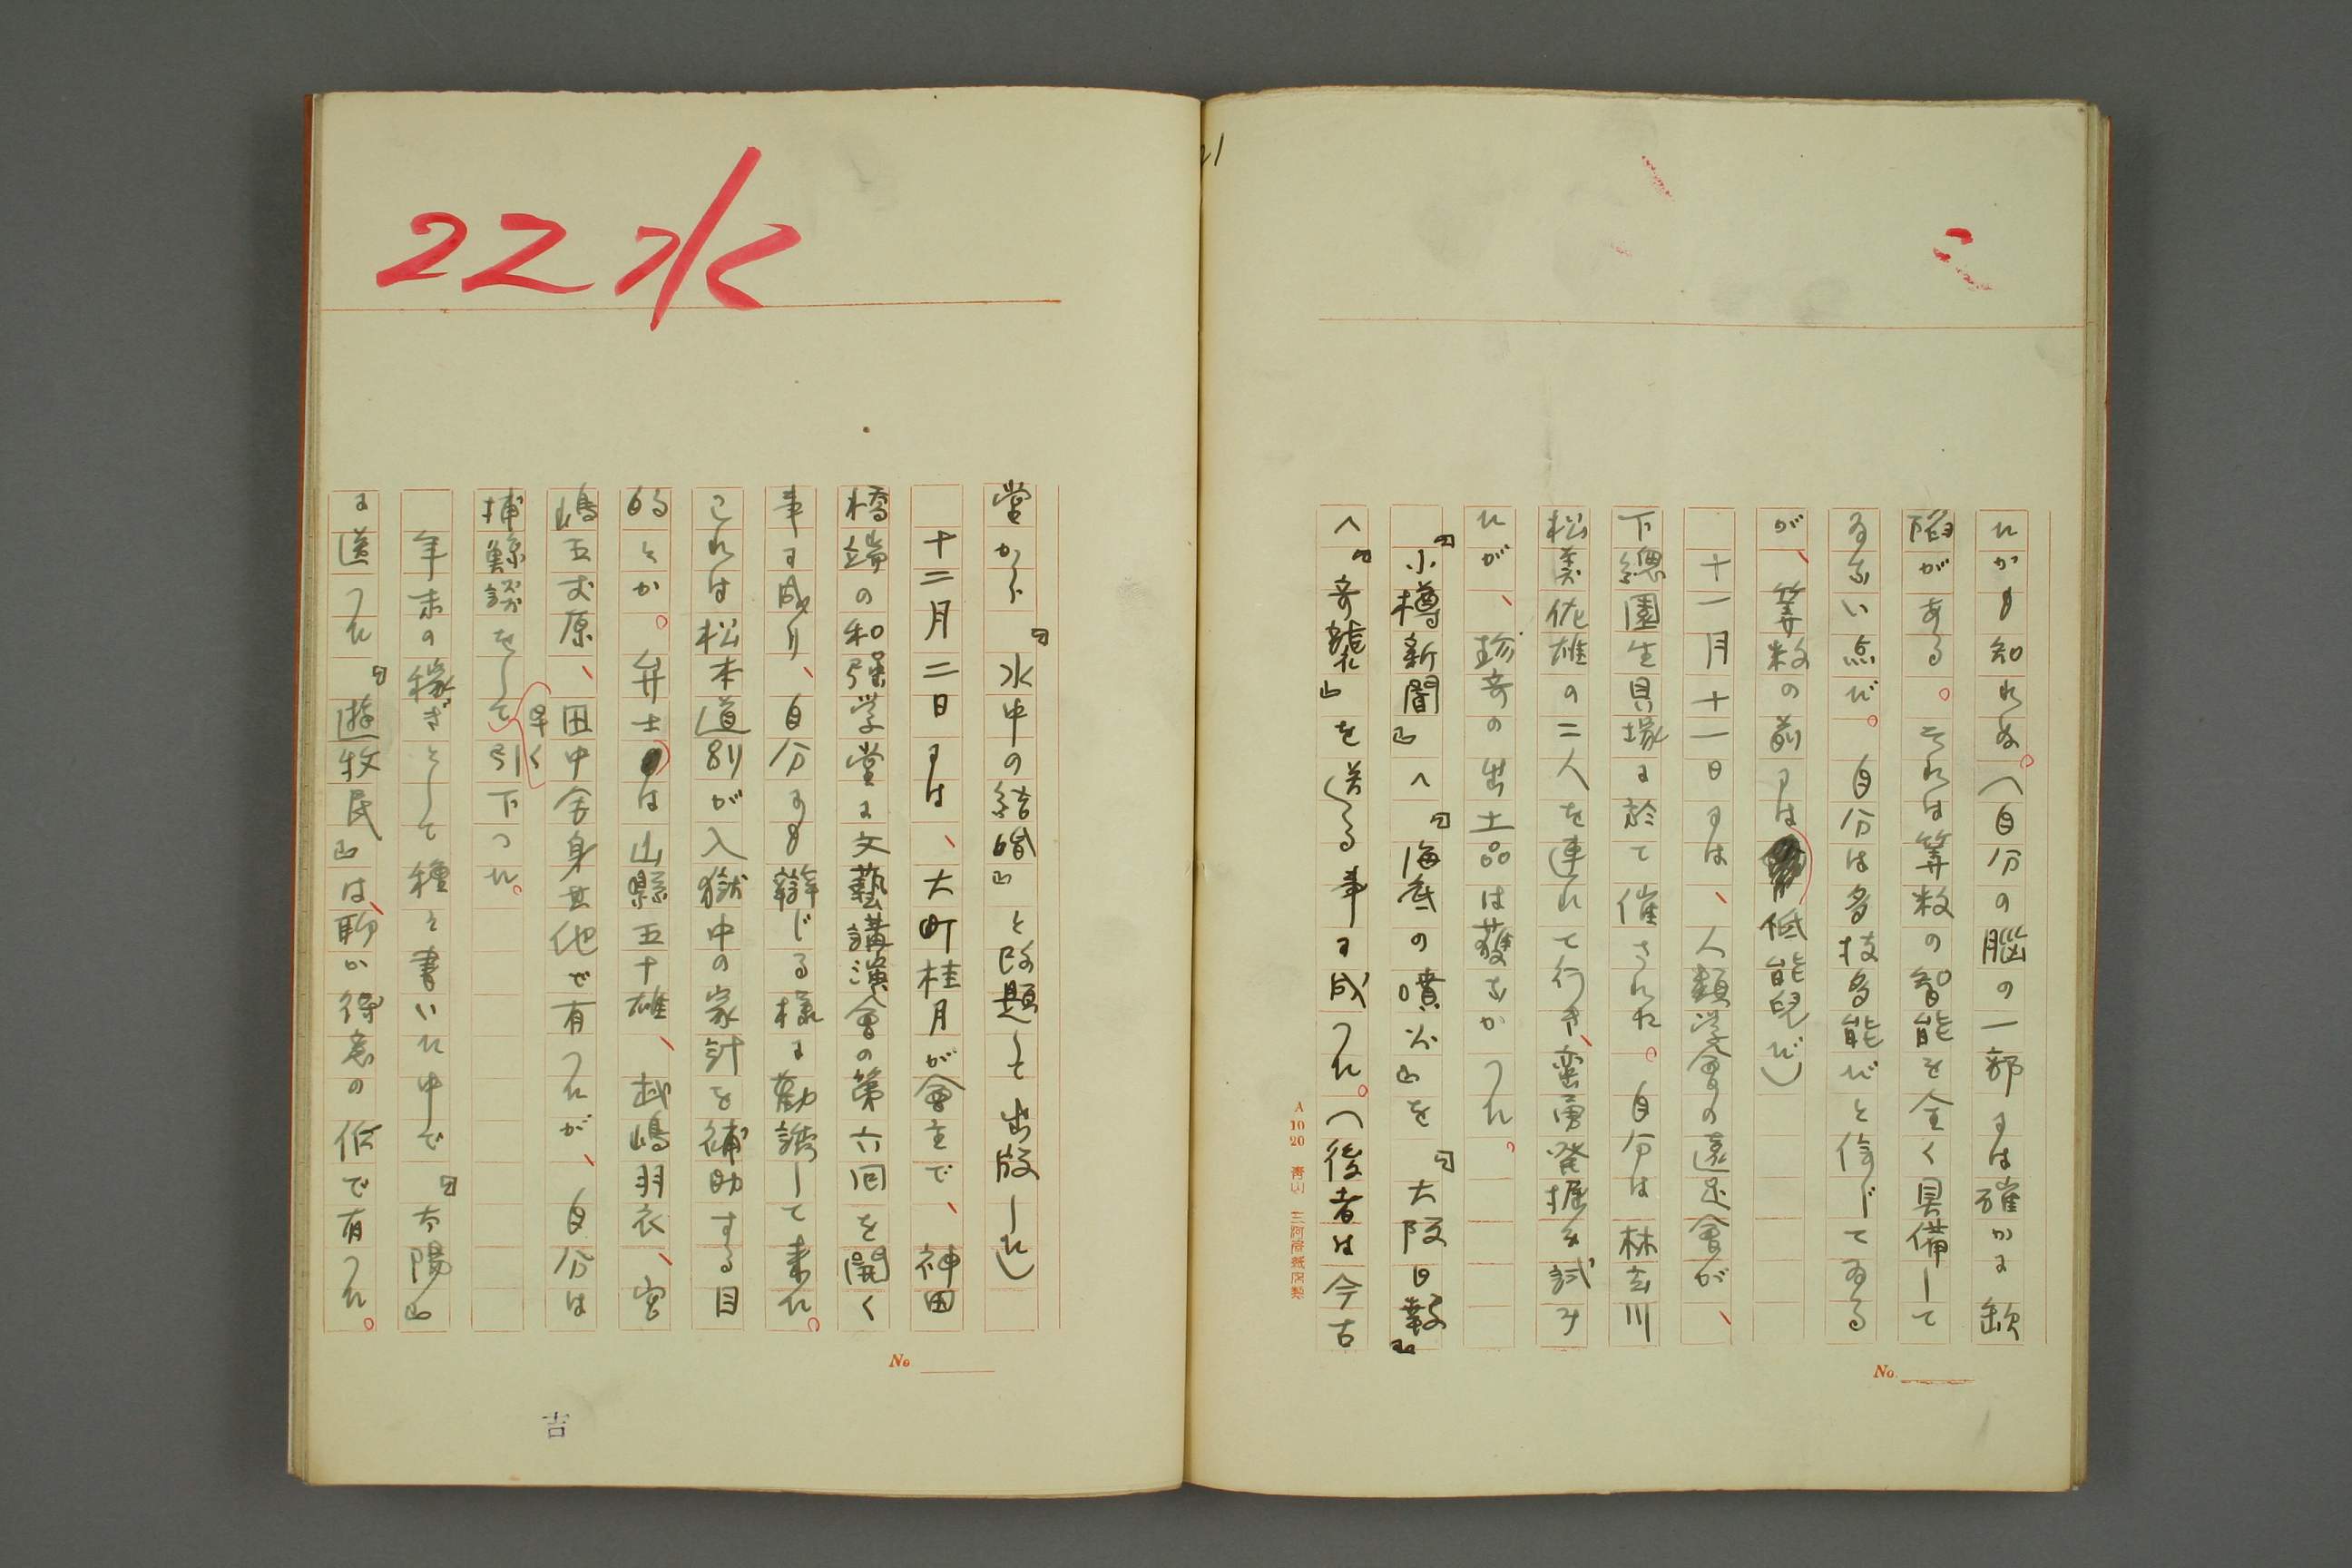 たかも知れぬ。(自分の脳の一部には確かに缺
陥がある。それは算数の智能を全く具備して
ゐない点だ。自分は多技多能だと信じてゐる
が、算数の前には低能児だ)
十一月十一日には、人類学會の遠足會が、
下總園生貝塚に於て催された。自分は林玄川
松美佐雄の二人を連れて行き、蛮勇発掘を試み
たが、珍奇の出土品は獲なかつた。
『小樽新聞』へ『海底の噴火』を『大阪日報』
へ『奇襲』を送る事に成つた。(後者は今古
堂から『水中の結婚』と改題して出版した)
十二月二日には、大町桂月が會主で、神田
橋端の和強学堂に文藝講演會の第六回を開く
事に成り、自分にも辯じる様に勧誘して来た。
これは松本道別が入獄中の家計を補助する目
的とか。弁士は山縣五十雄、越嶋羽衣、宮
嶋五丈原、田中舎身其他で有つたが、自分は
捕鯨談をして早く引下つた。
年末の稼ぎとして種々書いた中で『太陽』
に送つた『遊牧民』は、聊か得意の作で有つた。
22水
21
No.
No
A 10 20
吉